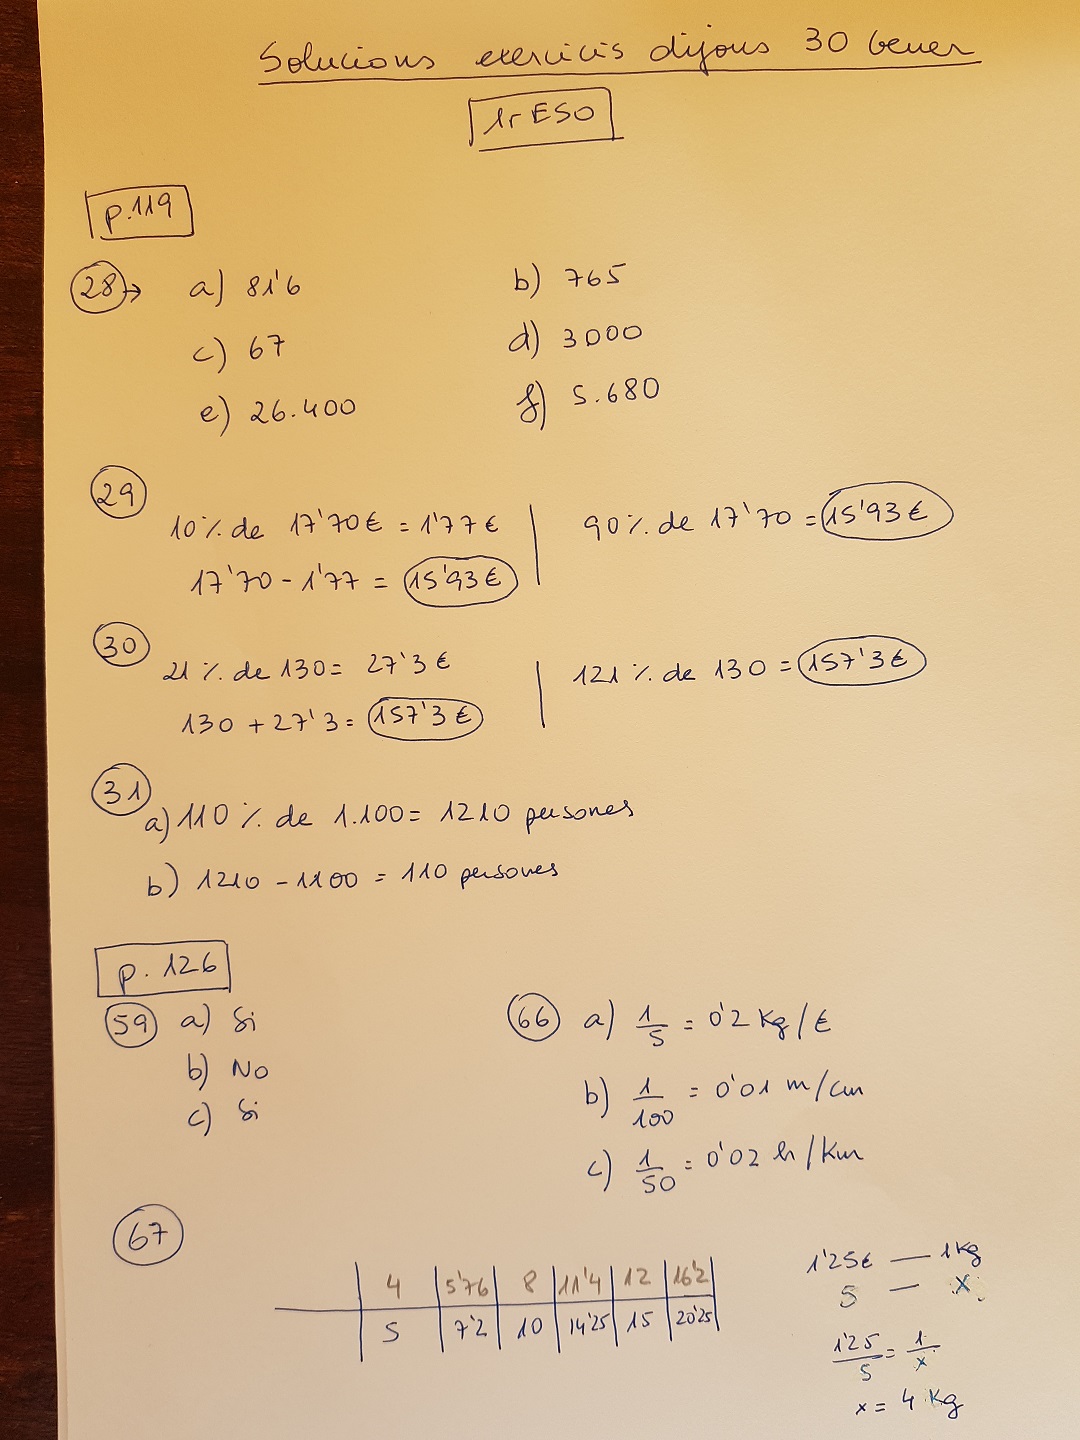 Solucions exercicis dijous 30 gener
1r ESO
p.119
28→ a) 81'6 b) 765
c) 67 d) 3000
e) 26.400 f) 5.680
29
10% de 17'70€ = 1'77€ | 90% de 17'70 = 15'93€
17'70 - 1'77 = 15'93€
30
21% de 130 = 27'3€ | 121% de 130 = 157'3€
130 + 27'3 = 157'3€
31
a) 110% de 1.100 = 1210 persones
b) 1210 - 1100 = 110 persones
p. 126
59 a) Si
b) No
c) Si
66 a) 1/5 = 0'2 Kg/€
b) 1/100 = 0'01 m/cm
c) 1/50 = 0'02 h/Km
67
4 | 5'76 | 8 | 11'4 | 12 | 16'2
5 | 7'2 | 10 | 14'25 | 15 | 20'25
1'25€ — 1Kg
5 — x
1'25/5 = 1/x
x = 4 Kg